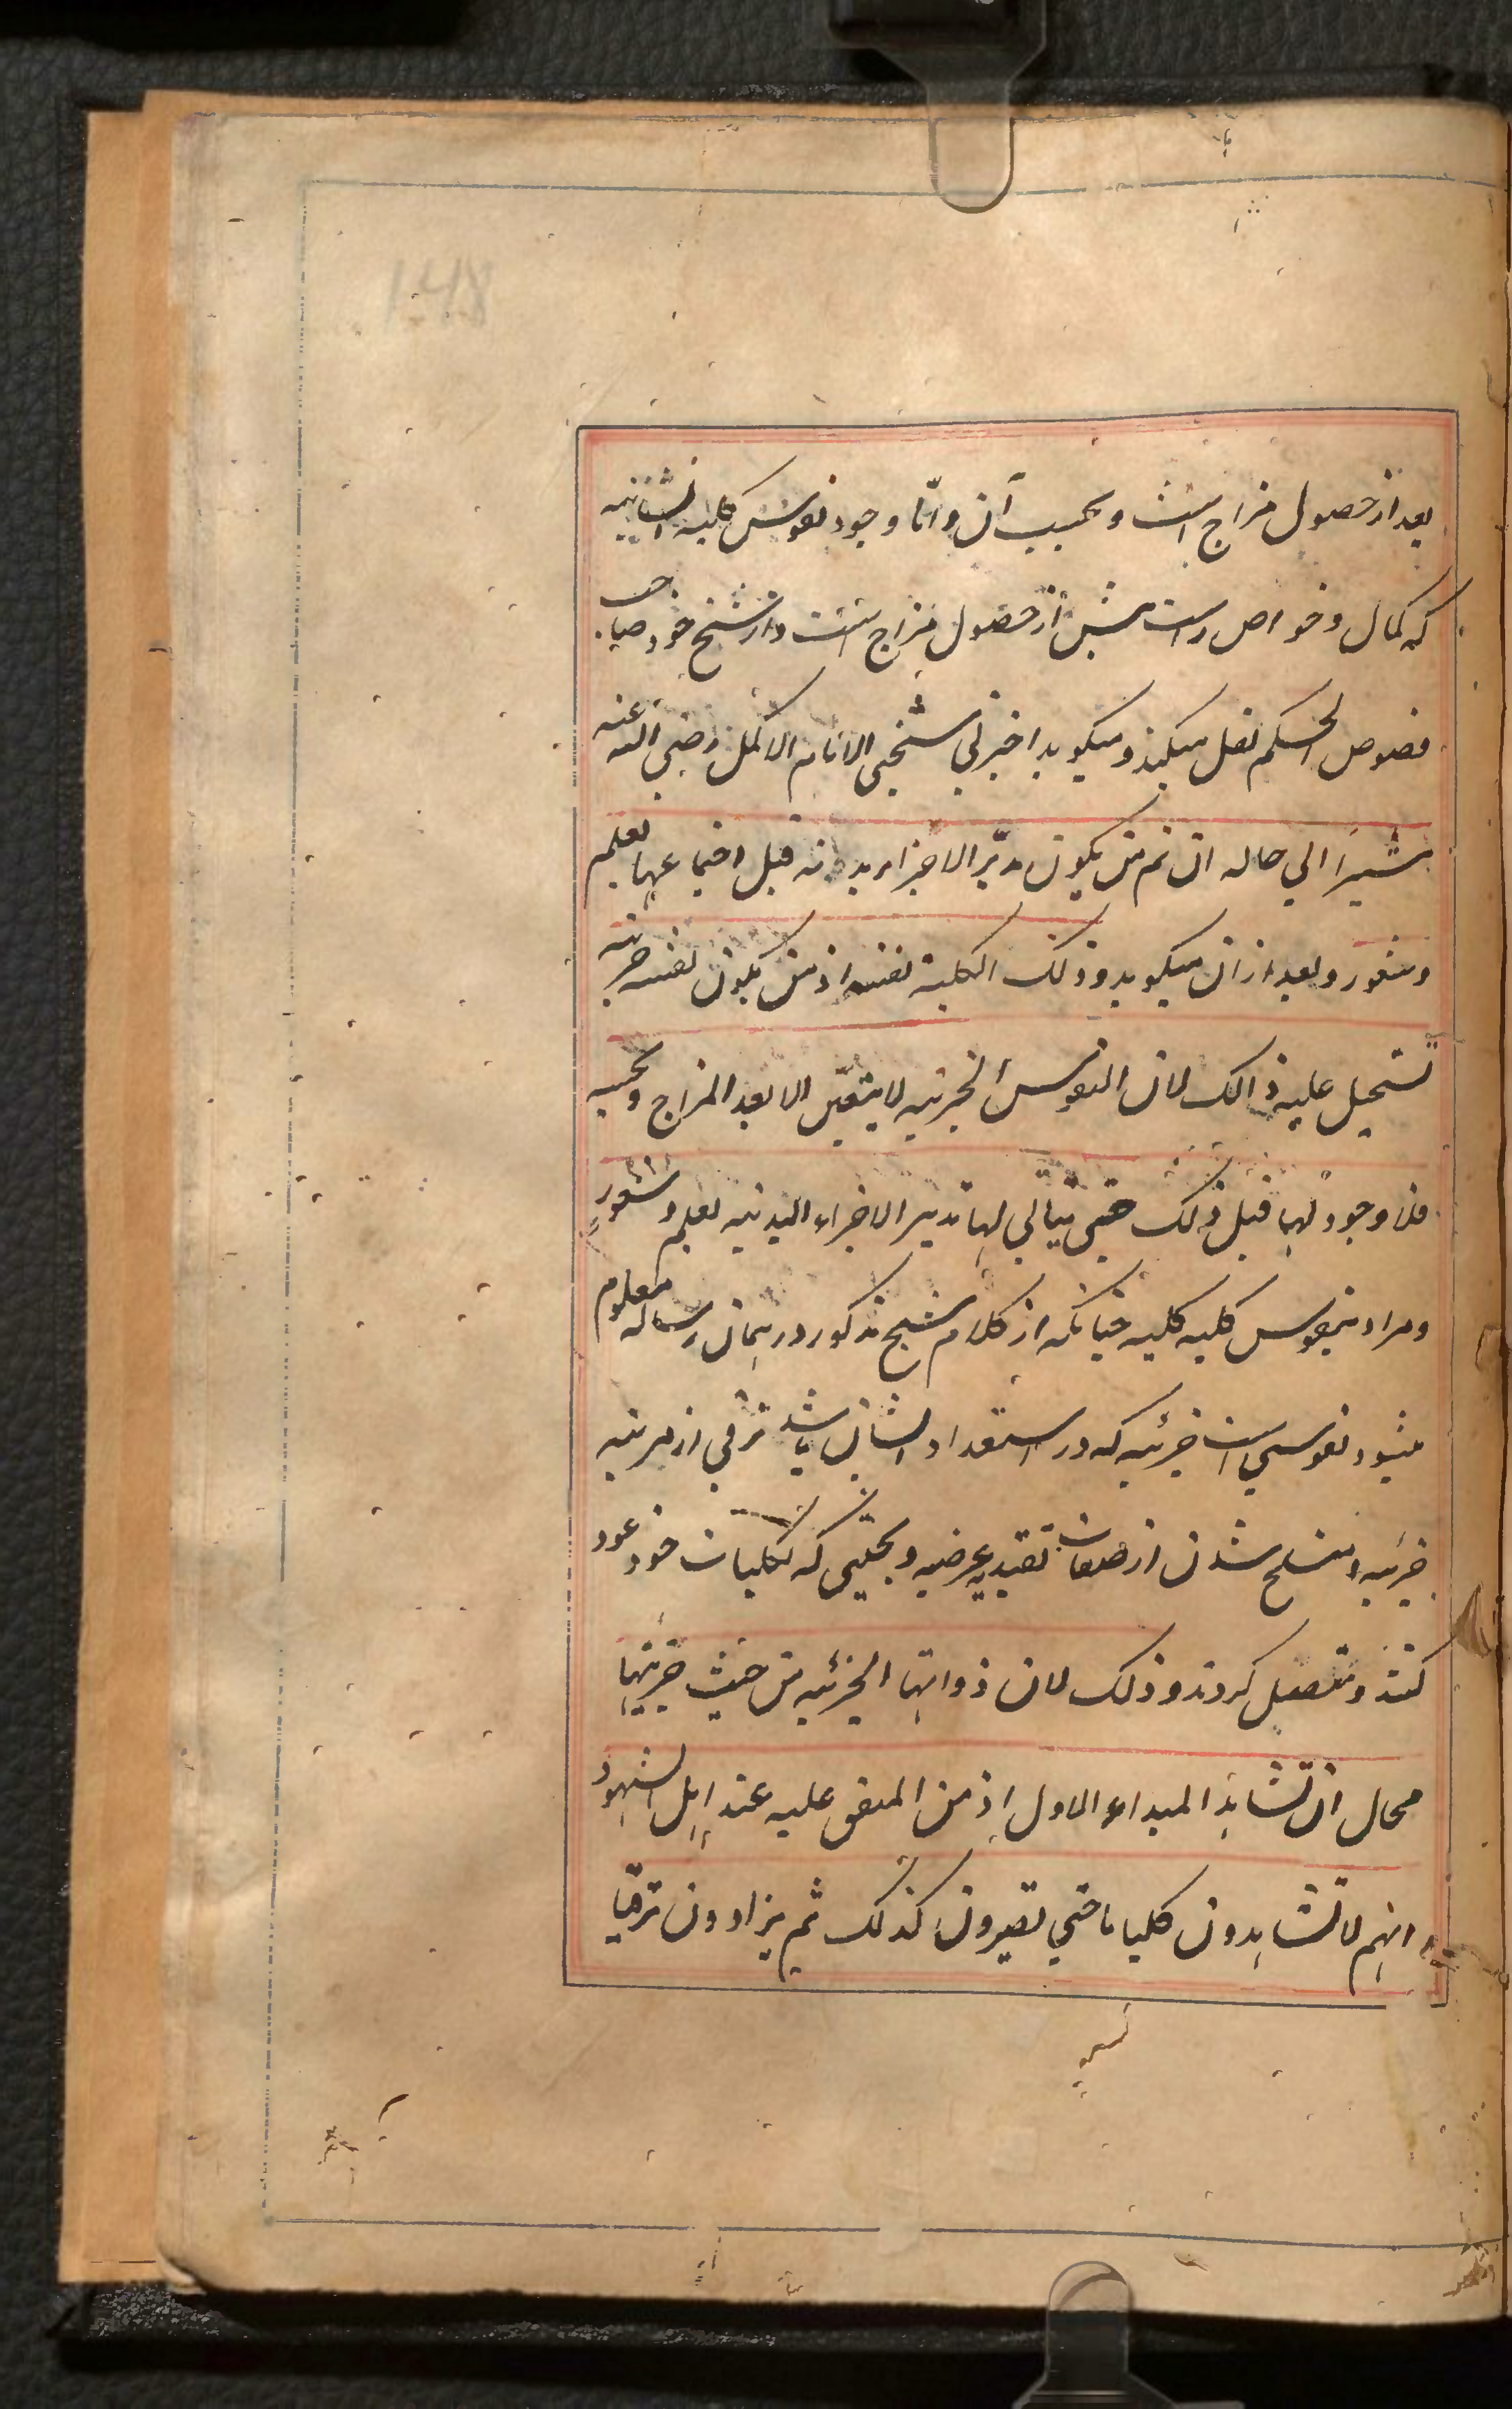 148
بعد از حصول مزاج است و بحسب آن و امّا وجود نفوس کلیه انسانیه
که کمال و خواص راست پیش از حصول مزاج است و از شیخ خود صاحب
فصوص الحکم نقل میکند و میکوید اخبرنی شیخی الامام الاکمل رضی الله عنه
مشیراً الی حاله ان ثم من یکون مدبّر الاجزاء بدنه قبل اجتماعها بعلم
و شعور و بعد از ان میکوید و ذلک الکلیة نفسه اذ من یکون نفسه جزئیه
تستحیل علیه ذالک لان النفوس الجزئیه لا یتعیّن الا بعد المزاج و بحسبه
فلا وجود لها قبل ذلک حتی یتاتی لها تدبیر الاجزاء البدنیه بعلم و شعور
و مراد بنفوس کلیه کلیه چنانکه از کلام شیخ مذکور در همان رساله معلوم
میشود نفوسی است جزئیه که در استعداد ایشان باشد ترقی از مرتبه
جزئیه و منسلخ شدن از صفات تقییدیه عرضیه و بحیثی که بکلیات خود عود
کنند و متصل کردند و ذلک لان ذواتها الجزئیه من حیث جزئیتها
محال ان تشاهد المبداء الاول اذ من المتفق علیه عند اهل الشهود
انهم لا تشاهدون کلیا ما حتی تصیرون کذلک ثم یزادون ترقیا